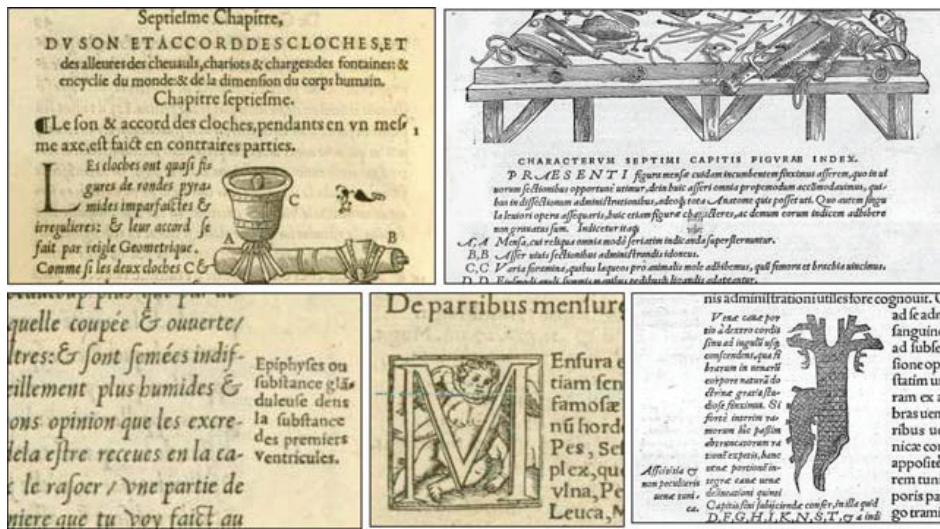 Septiesme Chapitre,
DV SON ET ACCORD DES CLOCHES, ET
des alleures des cheuauls, chariots & charges: des fontaines: &
encyclie du monde: & de la dimension du corps humain.
Chapitre septiesme.
Le son & accord des cloches, pendants en vn mes- 1
me axe, est faict en contraires parties.
LEs cloches ont quasi fi-
gures de rondes pyra-
mides imparfaictes &
irregulieres: & leur accord se
fait par reigle Geometrique.
Comme si les deux cloches C &
C
A
B
CHARACTERVM SEPTIMI CAPITIS FIGVRAE INDEX.
PRAESENTI figura mensæ cuidam incumbentem finximus asserem, quo in ui
uorum sectionibus opportunè utimur, dein huic asseri omnia propemodum accommodauimus, qui-
bus in dissectionum administrationibus, adeoq; tota Anatome quis posset uti. Quo autem singu
la leuiori opera assequaris, huic etiam figuræ characteres, ac demum eorum indicem adhibere
non grauatus sum. Indicetur itaq;
A, A Mensa, cui reliqua omnia modò seriatim indicanda supersternuntur.
B, B Asser uiuis sectionibus administrandis idoneus.
C, C Varia foramina, quibus laqueos pro animalis mole adhibemus, quū femora et brachia uincimus.
D, D
quelle coupée & ouuerte/
ltres: & sont semées indif-
eillement plus humides &
ons opinion que les excre-
dela estre receues en la ca-
le rasoer / vne partie de
niere que tu voy faict au
Epiphyses ou
substance glā-
duleuse dens
la substance
des premiers
ventricules.
De partibus mensuræ
MEnsura e
tiam sen
famosæ
nū hord
Pes, Ses
plex, que
vlna, Pe
Leuca, M
nis administrationi utiles fore cognouit. C
Venæ cauæ por
tio à dextro cordis
sinu ad iugulū usq;
conscendens, qua fi
brarum in uenarū
corpore naturā do
ctrinæ gratia stu-
diose finximus. Si
forte interim ra-
morum hîc passim
abtruncatorum ra
tionē expetis, hanc
uenæ portionē in-
tegræ cauæ uenæ
delineationi quinti
Capitis fini subijciendæ confer, in illa quid
D, F, G, H, I, K, N, S, T, & a indi
Asciuitia &
non peculiaris
uenæ tuni-
ca.
ad se adr
sanguine
ad subse
sione op
statim u
ram ex a
bras uen
ribus ue
nicæ con
apposite
rem tuni
poris pa
go trami